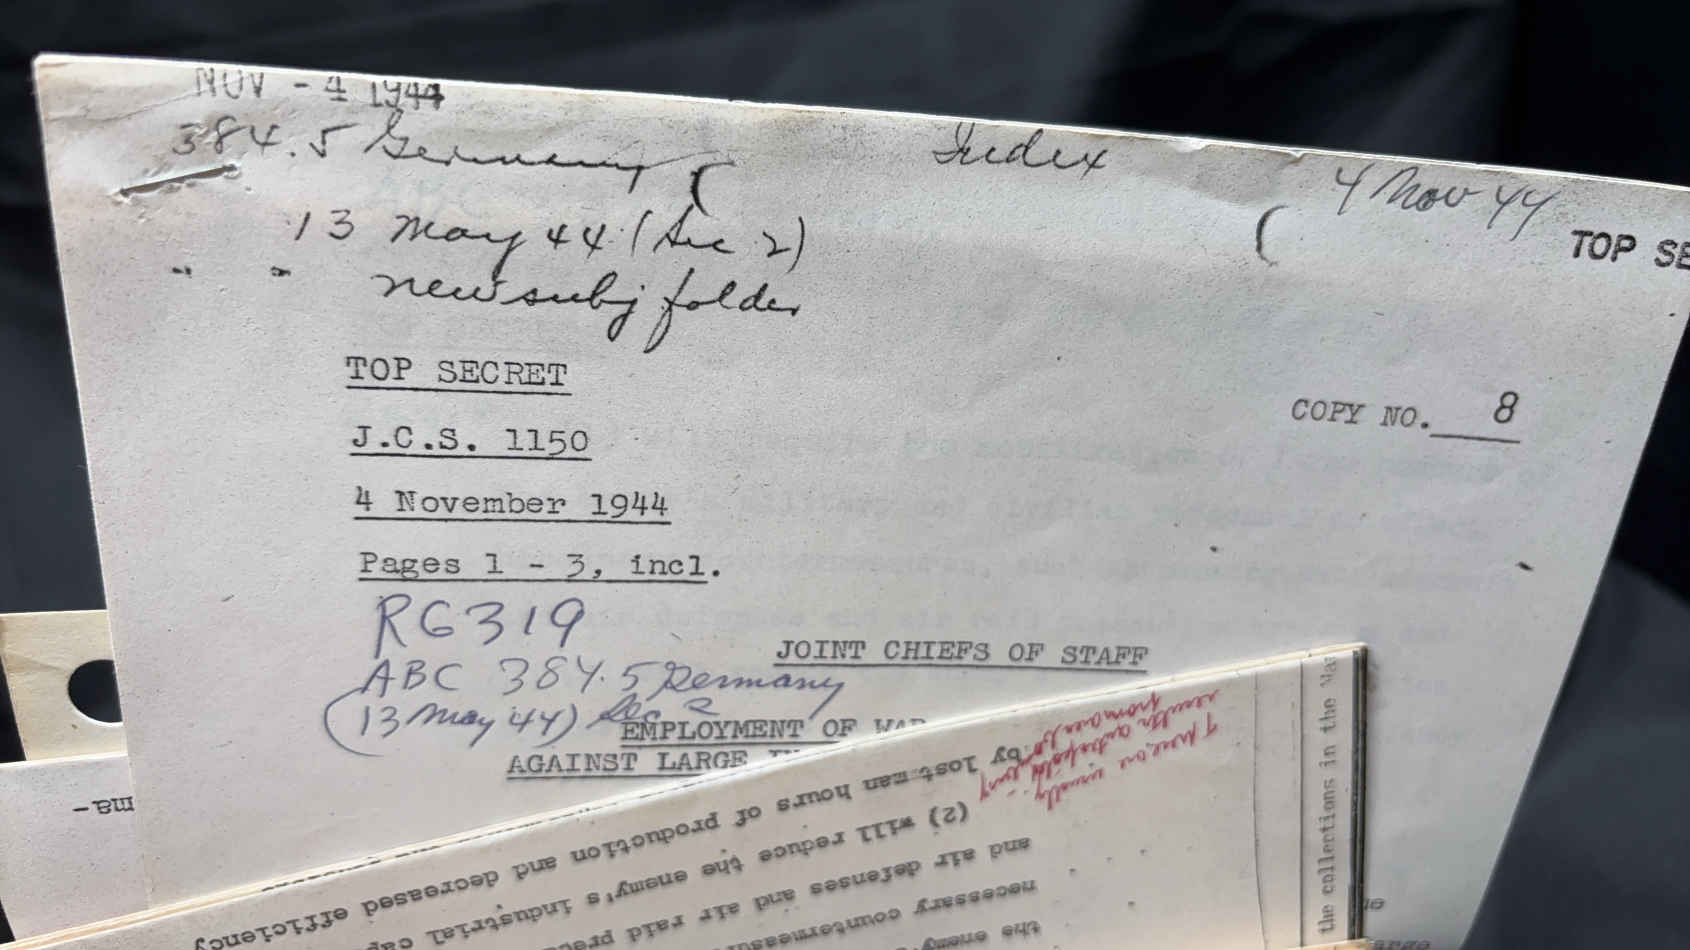 NOV - 4 1944
384.5 Germany (
Index
4 Nov 44
(
TOP SE
13 May 44 (Sec 2)
" " new subj folder
TOP SECRET
COPY NO. 8
J.C.S. 1150
4 November 1944
Pages 1 - 3, incl.
RG 319
ABC 384.5 Germany
(13 May 44) Sec 2
JOINT CHIEFS OF STAFF
EMPLOYMENT OF WAR
AGAINST LARGE
the collections in the
the enemy's
necessary countermeasures
and air defenses and air raid
(2) will reduce the enemy's industrial
by lost man hours of production and decreased efficiency
ma-